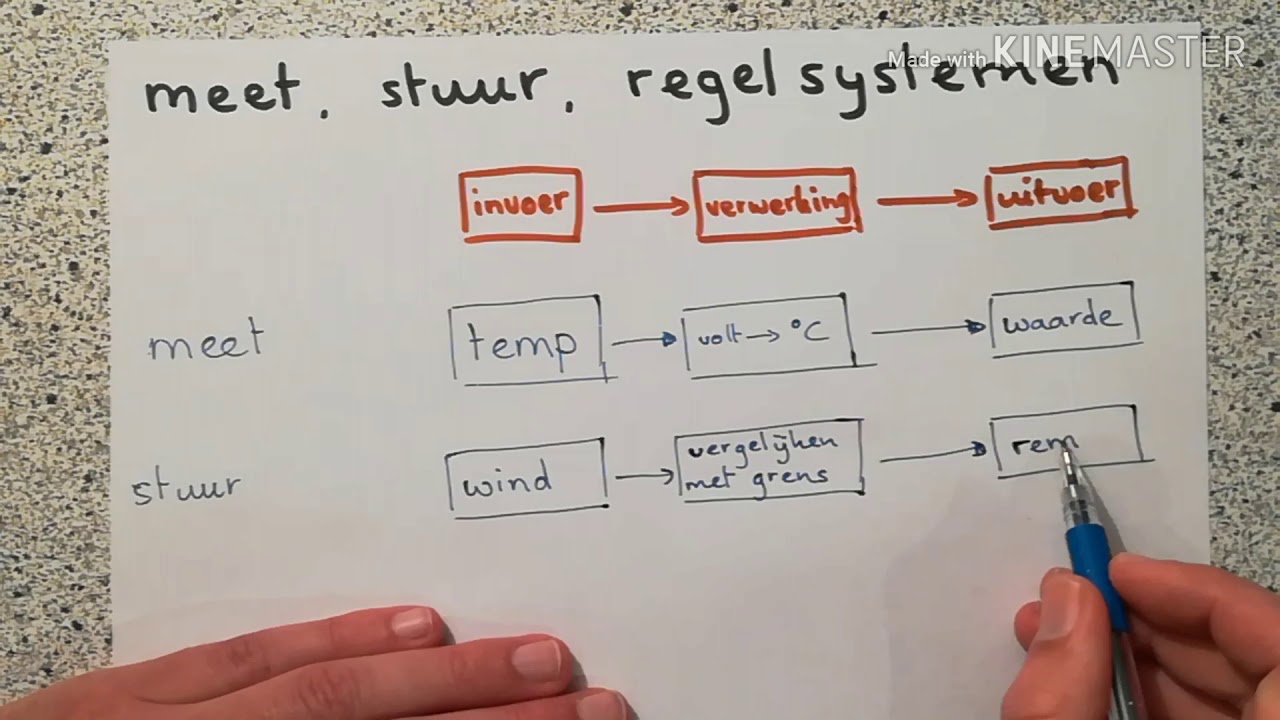 Made with KINEMASTER
meet, stuur, regelsystemen
invoer → verwerking → uitvoer
meet temp → volt → °C → waarde
stuur wind → vergelijken
met grens → rem